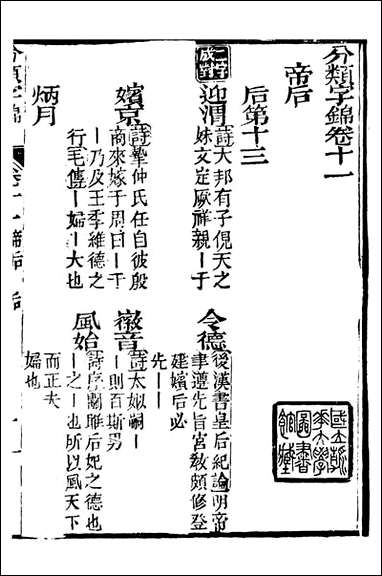 分類字錦卷十一
帝后
后第十三
二字
成對
迎渭
詩大邦有子俔天之
妹文定厥祥親｜于
令德
後漢書皇后紀論明帝
聿遵先旨宮教頗修登
建嬪后必
先｜｜
嬪京
詩摯仲氏任自彼殷
商來嫁于周曰｜于
｜乃及王季維德之
行毛傳｜婦｜大也
徽音
詩太姒嗣｜
｜則百斯男
風始
詩序關雎后妃之德也
｜之｜也所以風天下
而正夫
婦也
炳月
分類字錦
卷十一帝后 后
國立
大學
圖書
館藏